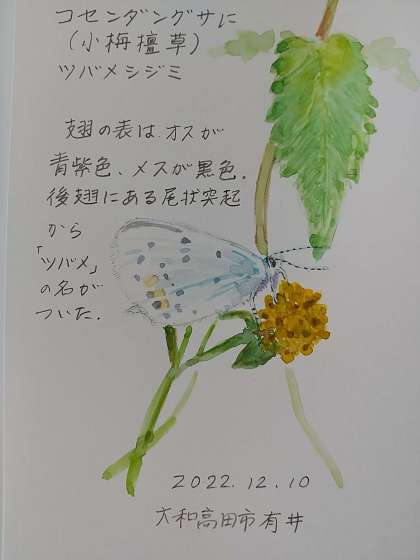 コセンダングサに
(小栴檀草)
ツバメシジミ
翅の表は、オスが
青紫色、メスが黒色。
後翅にある尾状突起
から
「ツバメ」
の名が
ついた。
2022.12.10
大和高田市有井